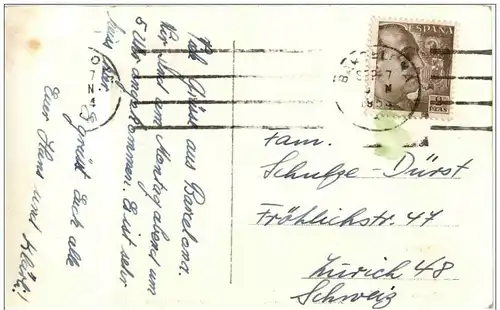 Viele Grüsse aus Barcelona.
Wir sind am Montag abend um
5 Uhr angekommen. Es ist sehr
heiss hier.
Es grüsst Euch alle
Euer Hans und Kläri!
ESPAÑA
2
PTAS
BARCELONA
Fam.
Schulze-Dürst
Fröhlichstr. 47
Zürich 48
Schweiz